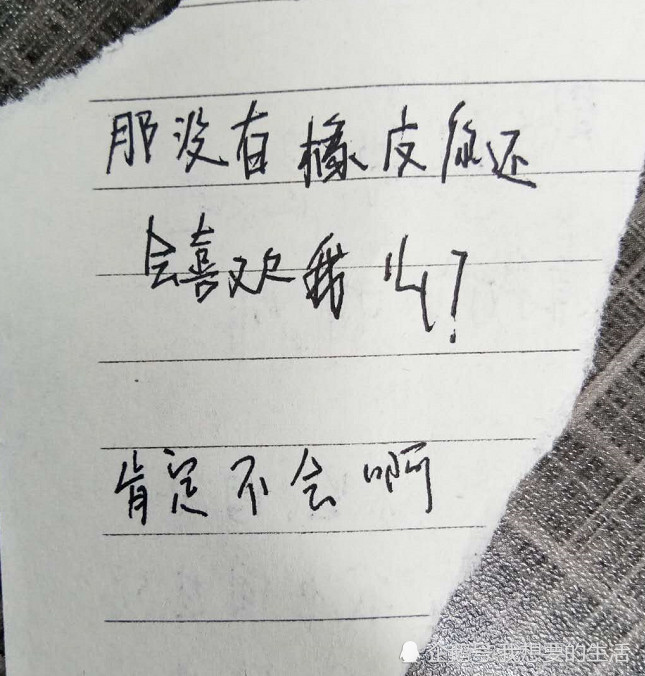 那没有橡皮你还
会喜欢我么？
肯定不会啊
企鹅号 我想要的生活